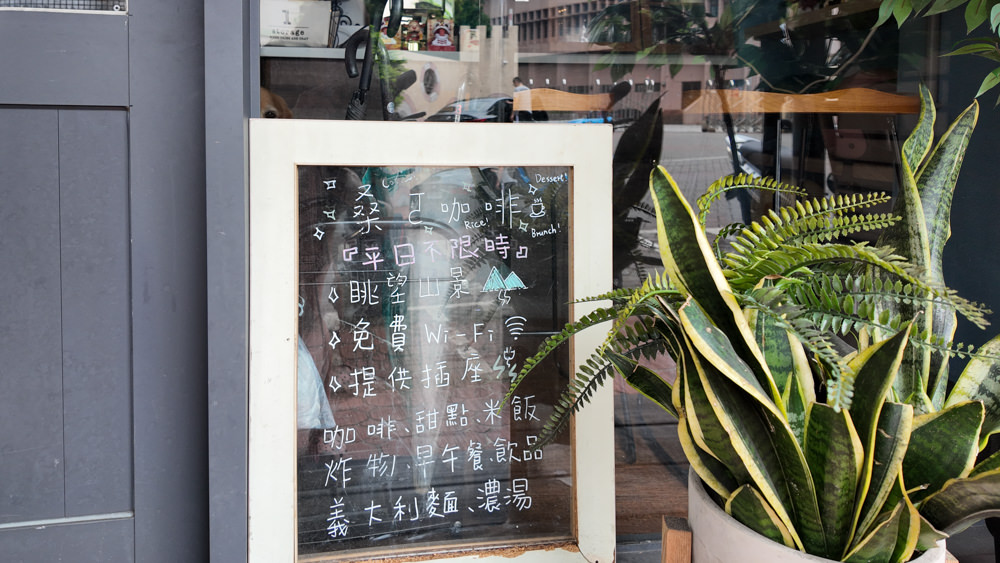 Dessert!
桑己咖啡
Rice!
Brunch!
『平日不限時』
眺望山景
免費 Wi-Fi
提供插座
咖啡、甜點、米飯
炸物、早午餐、飲品
義大利麵、濃湯